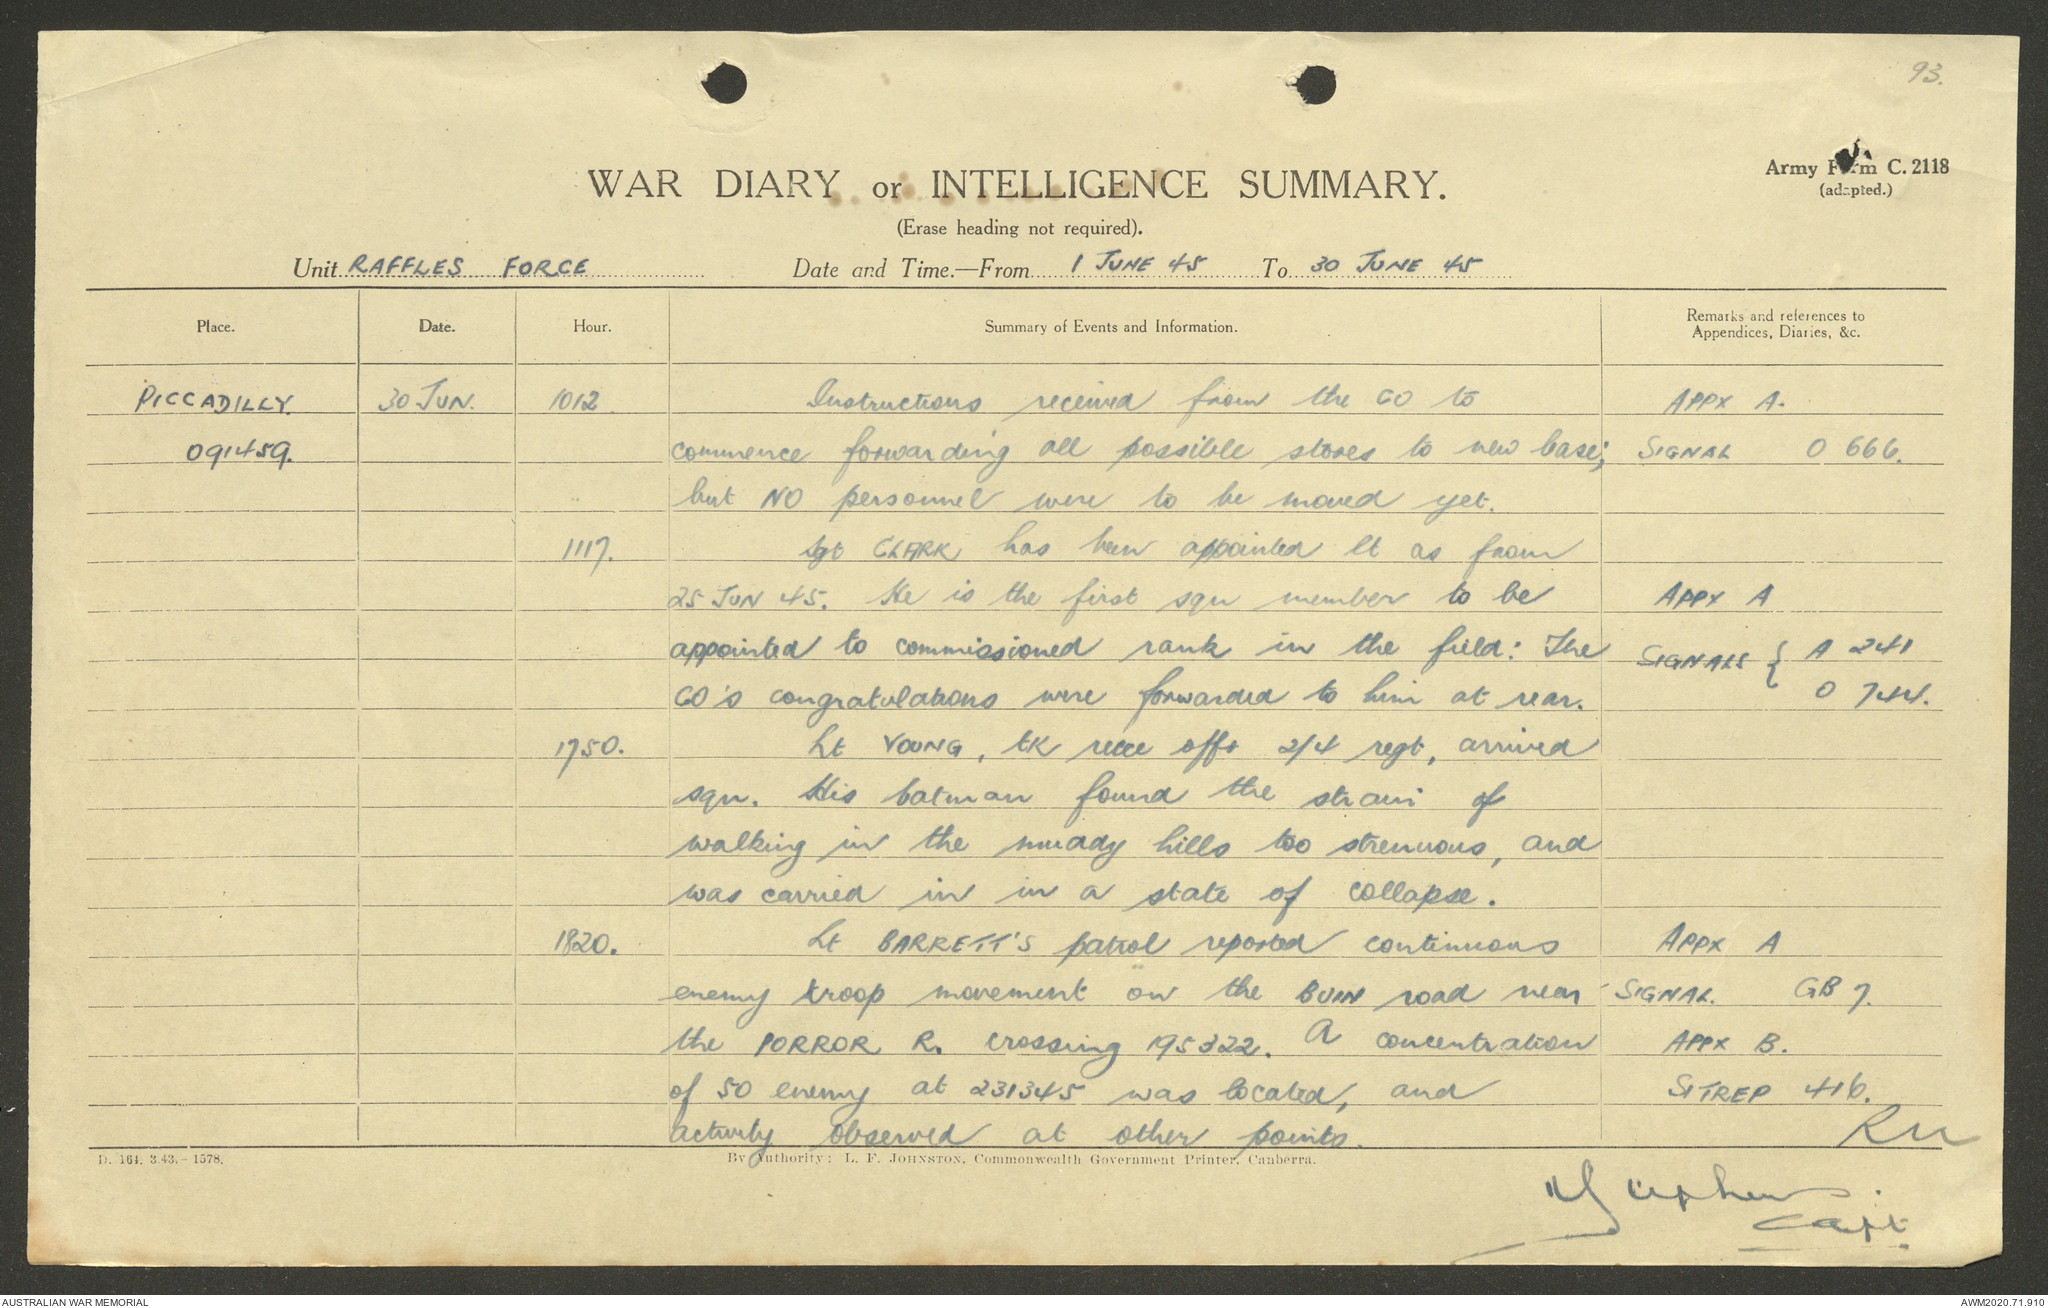 93.
Army Form C. 2118
(adapted.)
WAR DIARY or INTELLIGENCE SUMMARY.
(Erase heading not required).
Unit RAFFLES FORCE Date and Time.—From 1 JUNE 45 To 30 JUNE 45
Place. Date. Hour. Summary of Events and Information. Remarks and references to Appendices, Diaries, &c.
PICCADILLY. 30 JUN. 1012 Instructions received from the CO to APPX A.
091459. commence forwarding all possible stores to new base; SIGNAL O 666.
but NO personnel were to be moved yet.
1117. Sgt CLARK has been appointed Lt as from
25 JUN 45. He is the first sqn member to be APPX A
appointed to commissioned rank in the field: The SIGNALS { A 241
CO's congratulations were forwarded to him at rear. O 744.
1750. Lt YOUNG, tk recce offr 2/4 regt, arrived
sqn. His batman found the strain of
walking in the muddy hills too strenuous, and
was carried in in a state of collapse.
1820. Lt BARRETT'S patrol reported continuous APPX A
enemy troop movement on the BUIN road near SIGNAL. GB 7.
the PORROR R. crossing 195322. A concentration APPX B.
of 50 enemy at 231345 was located, and SITREP 416.
activity observed at other points.
D. 164. 3.43.—1578. By Authority: L. F. JOHNSTON, Commonwealth Government Printer, Canberra.
Capt.
AUSTRALIAN WAR MEMORIAL AWM2020.71.910